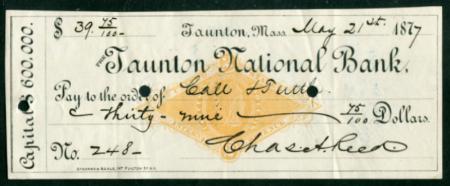 $ 39.75/100 Taunton, Mass May 21st. 1877
THE Taunton National Bank,
Pay to the order of Call & Tuttle
thirty-nine 75/100 Dollars.
No. 248 Chas. A. Reed
Capital $600,000.